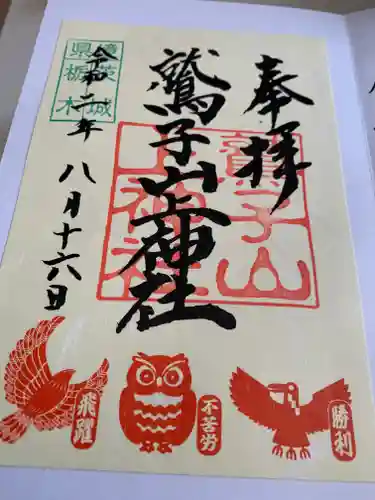 奉拝
鷲子山上神社
令和二年
八月十六日
鷲子山
上神社
境茨城
県栃木
飛躍
不苦労
勝利